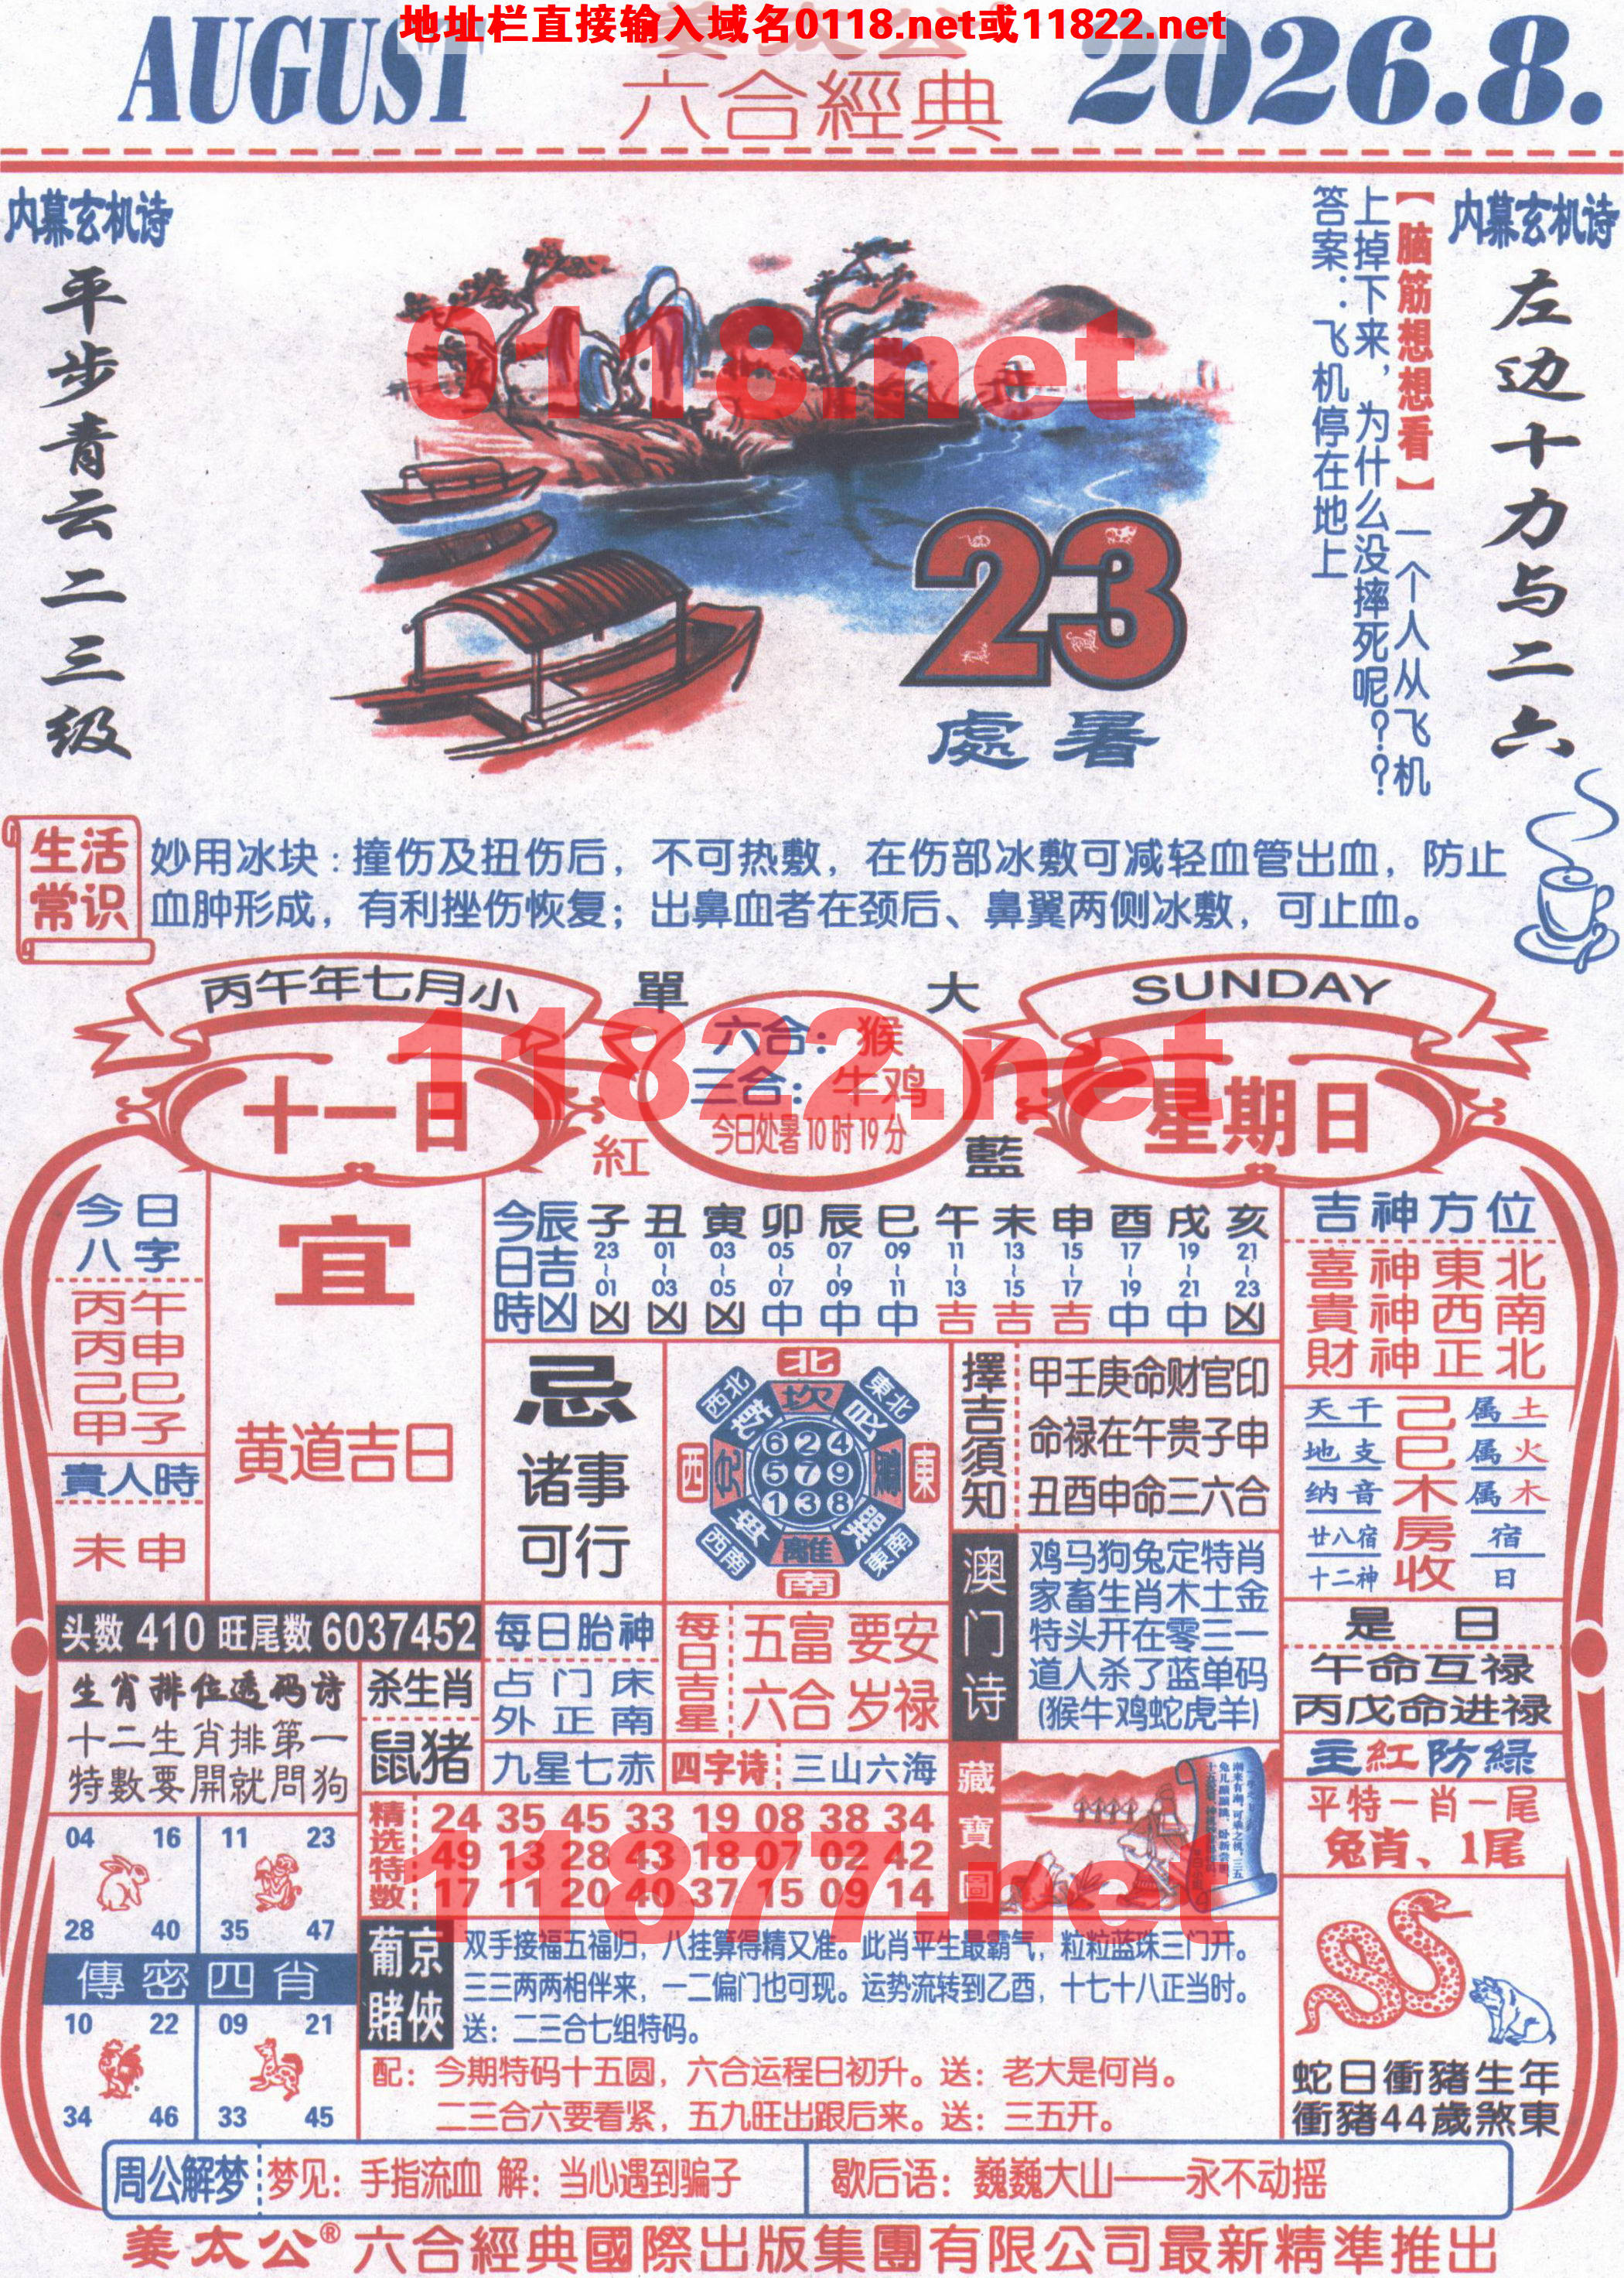 地址栏直接输入域名0118.net或11822.net
AUGUST
姜太公
六合經典
2026.8.
内幕玄机诗
平步青云二三级
内幕玄机诗
左边十力与二六
【脑筋想想看】一个人从飞机
上掉下来，为什么没摔死呢？？
答案：飞机停在地上
0118.net
23
處暑
生活常识
妙用冰块：撞伤及扭伤后，不可热敷，在伤部冰敷可减轻血管出血，防止
血肿形成，有利挫伤恢复；出鼻血者在颈后、鼻翼两侧冰敷，可止血。
丙午年七月小
十一日
單
大
紅
藍
六合：猴
三合：牛鸡
今日处暑10时19分
SUNDAY
星期日
11822.net
今日八字
丙午
丙申
己巳
甲子
貴人時
未申
宜
黄道吉日
今日時辰吉凶
子 丑 寅 卯 辰 巳 午 未 申 酉 戌 亥
23~01 01~03 03~05 05~07 07~09 09~11 11~13 13~15 15~17 17~19 19~21 21~23
凶 凶 凶 中 中 中 吉 吉 吉 中 中 凶
忌
诸事
可行
北
西北
東北
坎
西
東
624
579
138
西南
東南
離
南
擇吉須知
甲壬庚命财官印
命禄在午贵子申
丑酉申命三六合
澳门诗
鸡马狗兔定特肖
家畜生肖木土金
特头开在零三一
道人杀了蓝单码
(猴牛鸡蛇虎羊)
吉神方位
喜神東北
貴神西南
財神正北
天干 己 属土
地支 巳 属火
纳音 木 属木
廿八宿 房 宿
十二神 收 日
是日
午命互禄
丙戊命进禄
主紅防緑
平特一肖一尾
兔肖、1尾
头数 410 旺尾数 6037452
生肖排位透码诗
十二生肖排第一
特數要開就問狗
杀生肖
鼠猪
每日胎神
占门床
外正南
九星七赤
每日吉星
五富 要安
六合 岁禄
四字诗
三山六海
精选特数
24 35 45 33 19 08 38 34
49 13 28 43 18 07 02 42
17 11 20 40 37 15 09 14
藏寶圖
11877.net
04 16
28 40
11 23
35 47
傳密四肖
10 22
34 46
09 21
33 45
葡京賭俠
双手接福五福归，八挂算得精又准。此肖平生最霸气，粒粒蓝珠三门开。
三三两两相伴来，一二偏门也可现。运势流转到乙酉，十七十八正当时。
送：二三合七组特码。
配：今期特码十五圆，六合运程日初升。送：老大是何肖。
二三合六要看紧，五九旺出跟后来。送：三五开。
蛇日衝豬生年
衝豬44歲煞東
周公解梦
梦见：手指流血 解：当心遇到骗子
歇后语：巍巍大山——永不动摇
姜太公®六合經典國際出版集團有限公司最新精準推出